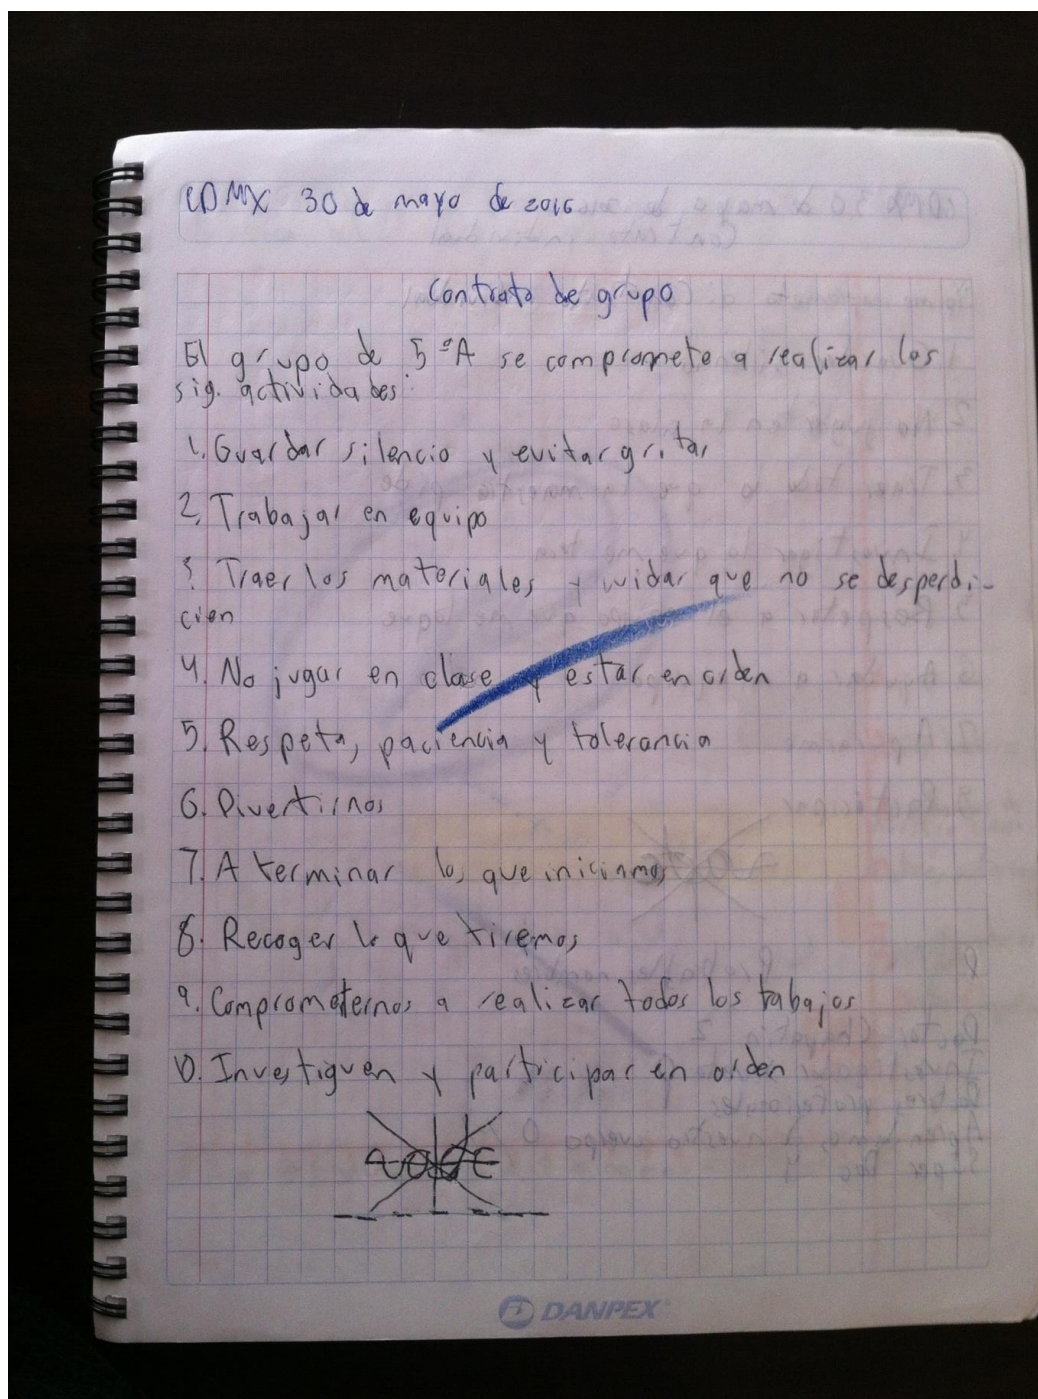 CDMX 30 de mayo de 2016
Contrato de grupo
El grupo de 5ºA se compromete a realizar los
sig. actividades:
1. Guardar silencio y evitar gritar
2. Trabajar en equipo
3 Traer los materiales y cuidar que no se desperdi-
cien
4. No jugar en clase y estar en orden
5. Respeta, paciencia y tolerancia
6. Divertirnos
7. A terminar los que iniciamos
8. Recoger lo que tiremos
9. Comprometernos a realizar todos los trabajos
10. Investiguen y participar en orden
DANPEX